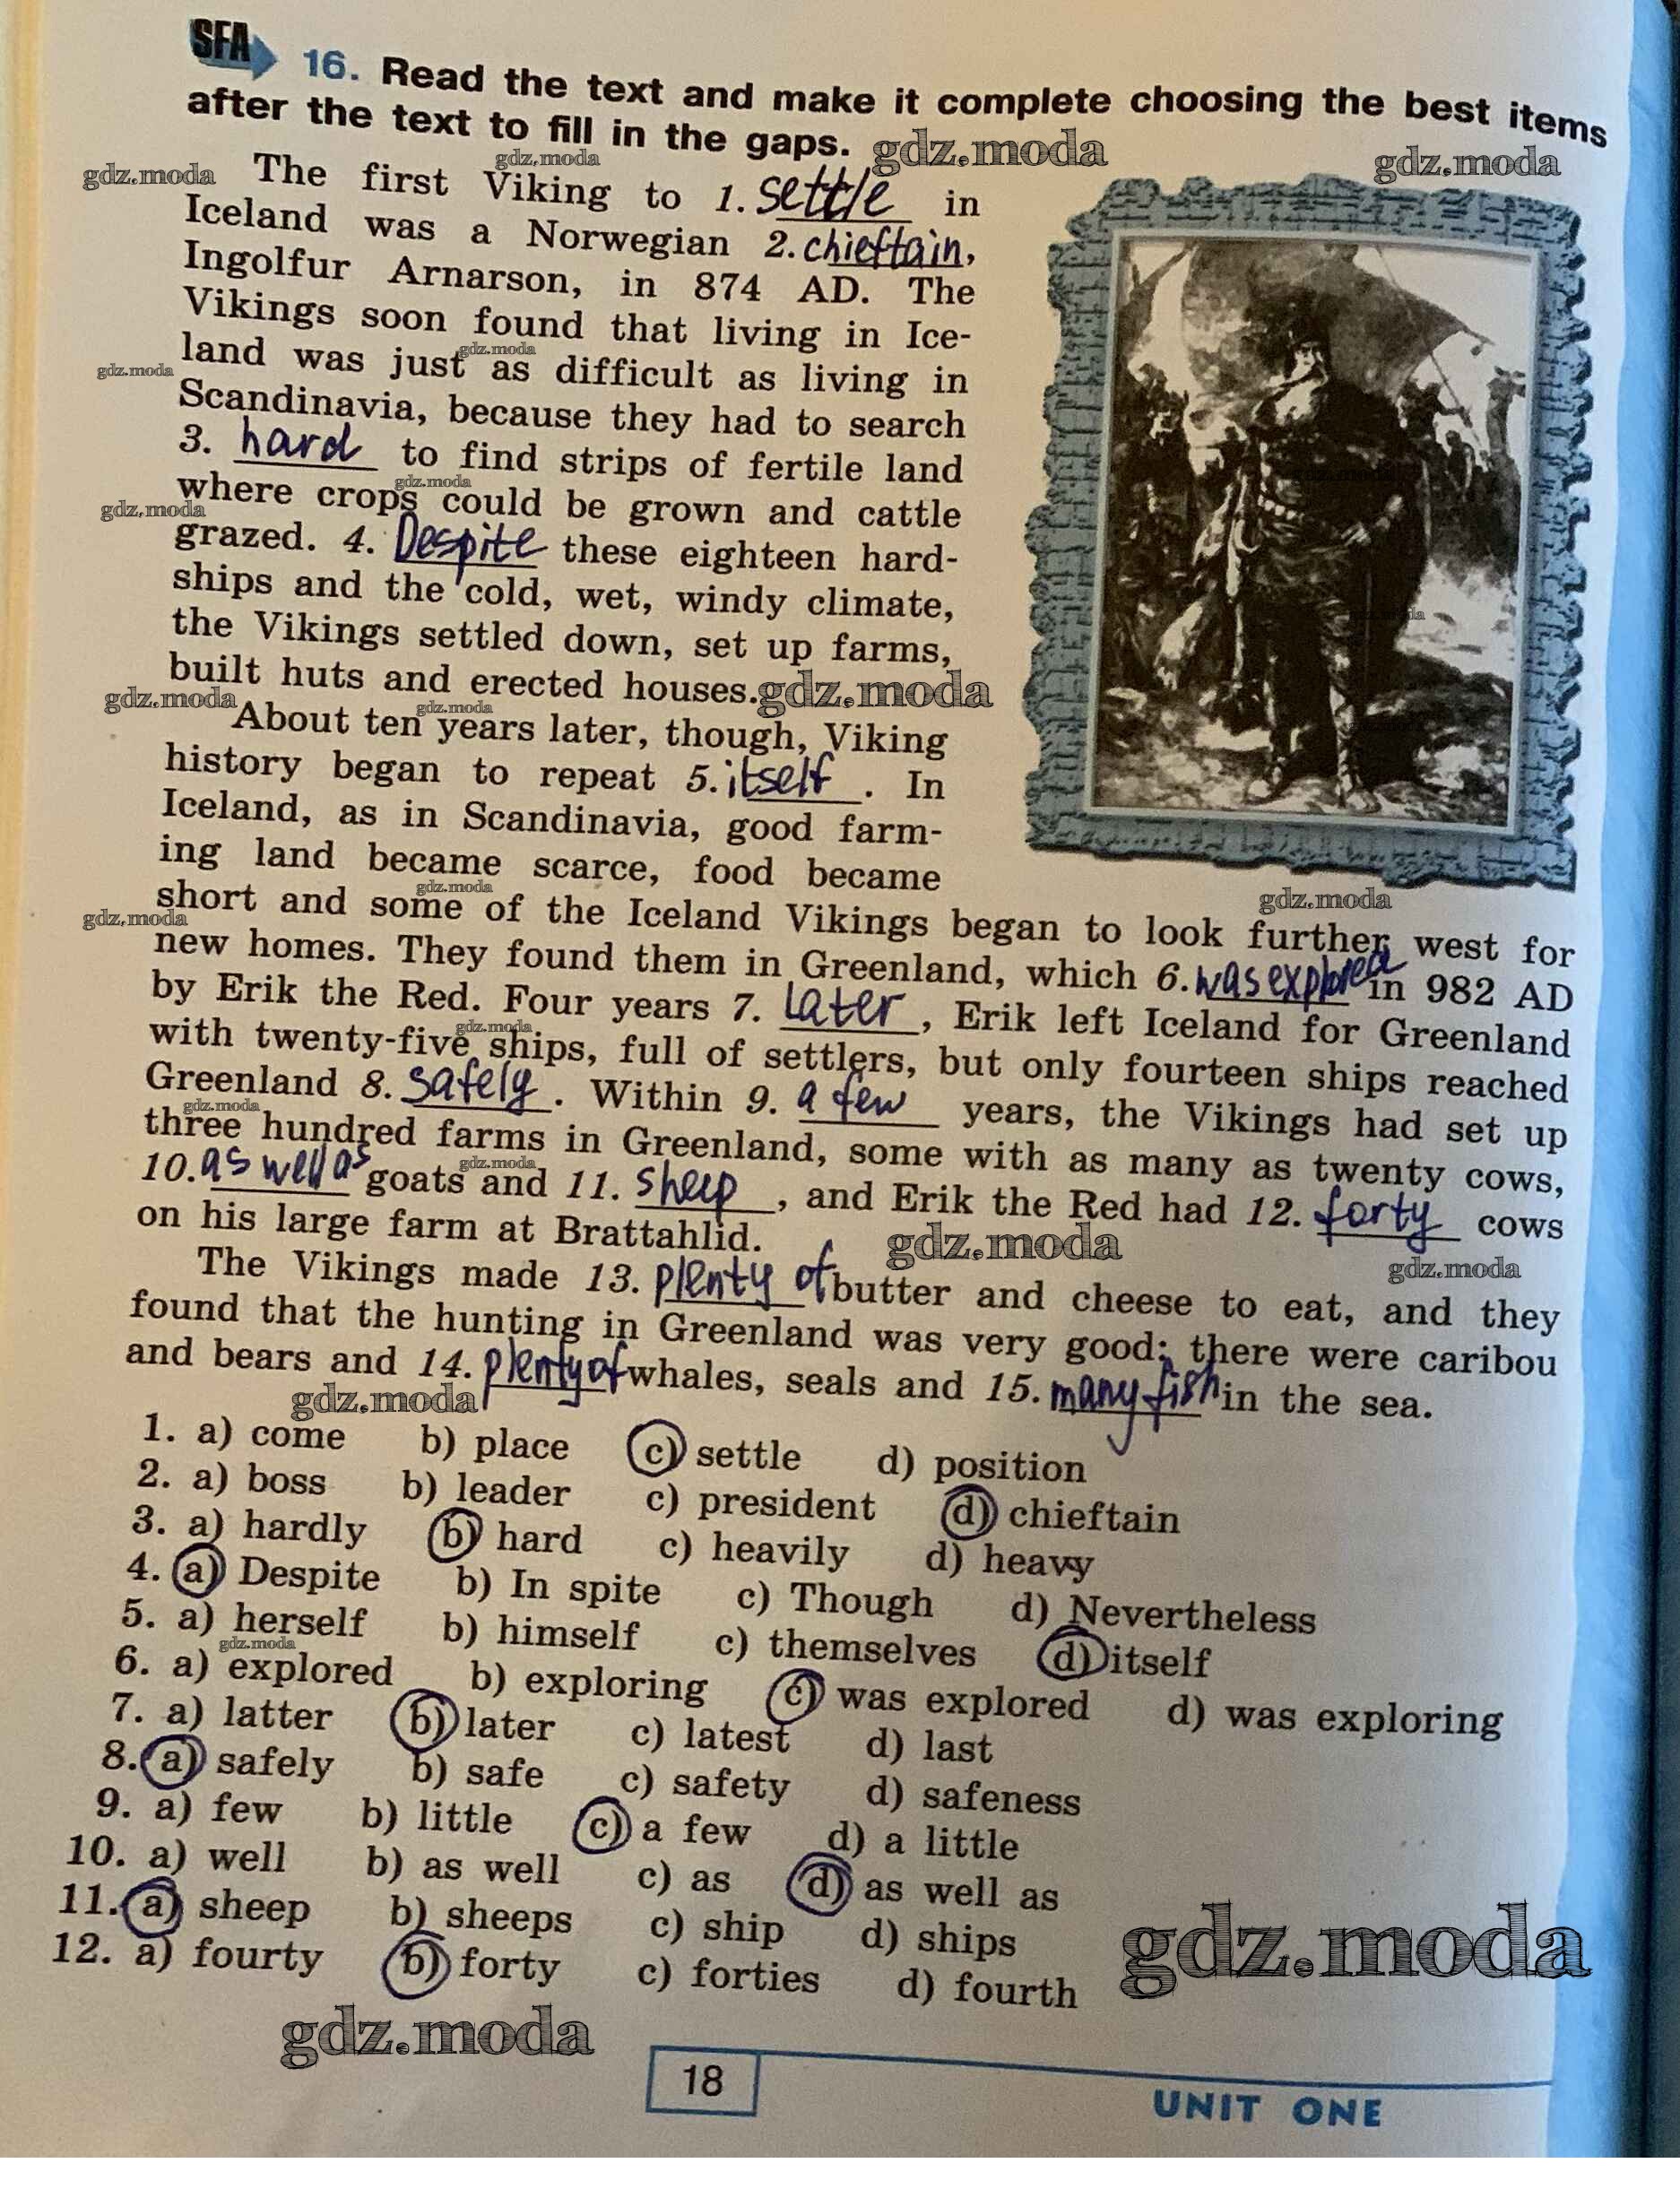 SFA 16. Read the text and make it complete choosing the best items
after the text to fill in the gaps. gdz.moda
gdz.moda
gdz.moda
gdz.moda
The first Viking to 1. settle in
Iceland was a Norwegian 2. chieftain,
Ingolfur Arnarson, in 874 AD. The
Vikings soon found that living in Ice-
gdz.moda
land was just as difficult as living in
gdz.moda
Scandinavia, because they had to search
3. hard to find strips of fertile land
gdz.moda
where crops could be grown and cattle
gdz.moda
grazed. 4. Despite these eighteen hard-
ships and the cold, wet, windy climate,
the Vikings settled down, set up farms,
built huts and erected houses. gdz.moda
gdz.moda
gdz.moda
About ten years later, though, Viking
history began to repeat 5. itself. In
Iceland, as in Scandinavia, good farm-
ing land became scarce, food became
gdz.moda
gdz.moda
gdz.moda
short and some of the Iceland Vikings began to look further west for
new homes. They found them in Greenland, which 6. was explored in 982 AD
by Erik the Red. Four years 7. Later, Erik left Iceland for Greenland
gdz.moda
with twenty-five ships, full of settlers, but only fourteen ships reached
Greenland 8. safely. Within 9. a few years, the Vikings had set up
gdz.moda
three hundred farms in Greenland, some with as many as twenty cows,
gdz.moda
10. as well as goats and 11. sheep, and Erik the Red had 12. forty cows
on his large farm at Brattahlid.
gdz.moda
gdz.moda
The Vikings made 13. plenty of butter and cheese to eat, and they
found that the hunting in Greenland was very good; there were caribou
and bears and 14. plenty of whales, seals and 15. many fish in the sea.
gdz.moda
1. a) come b) place c) settle d) position
2. a) boss b) leader c) president d) chieftain
3. a) hardly b) hard c) heavily d) heavy
4. a) Despite b) In spite c) Though d) Nevertheless
5. a) herself b) himself c) themselves d) itself
gdz.moda
6. a) explored b) exploring c) was explored d) was exploring
7. a) latter b) later c) latest d) last
8. a) safely b) safe c) safety d) safeness
9. a) few b) little c) a few d) a little
10. a) well b) as well c) as d) as well as
11. a) sheep b) sheeps c) ship d) ships
12. a) fourty b) forty c) forties d) fourth
gdz.moda
gdz.moda
18
UNIT ONE